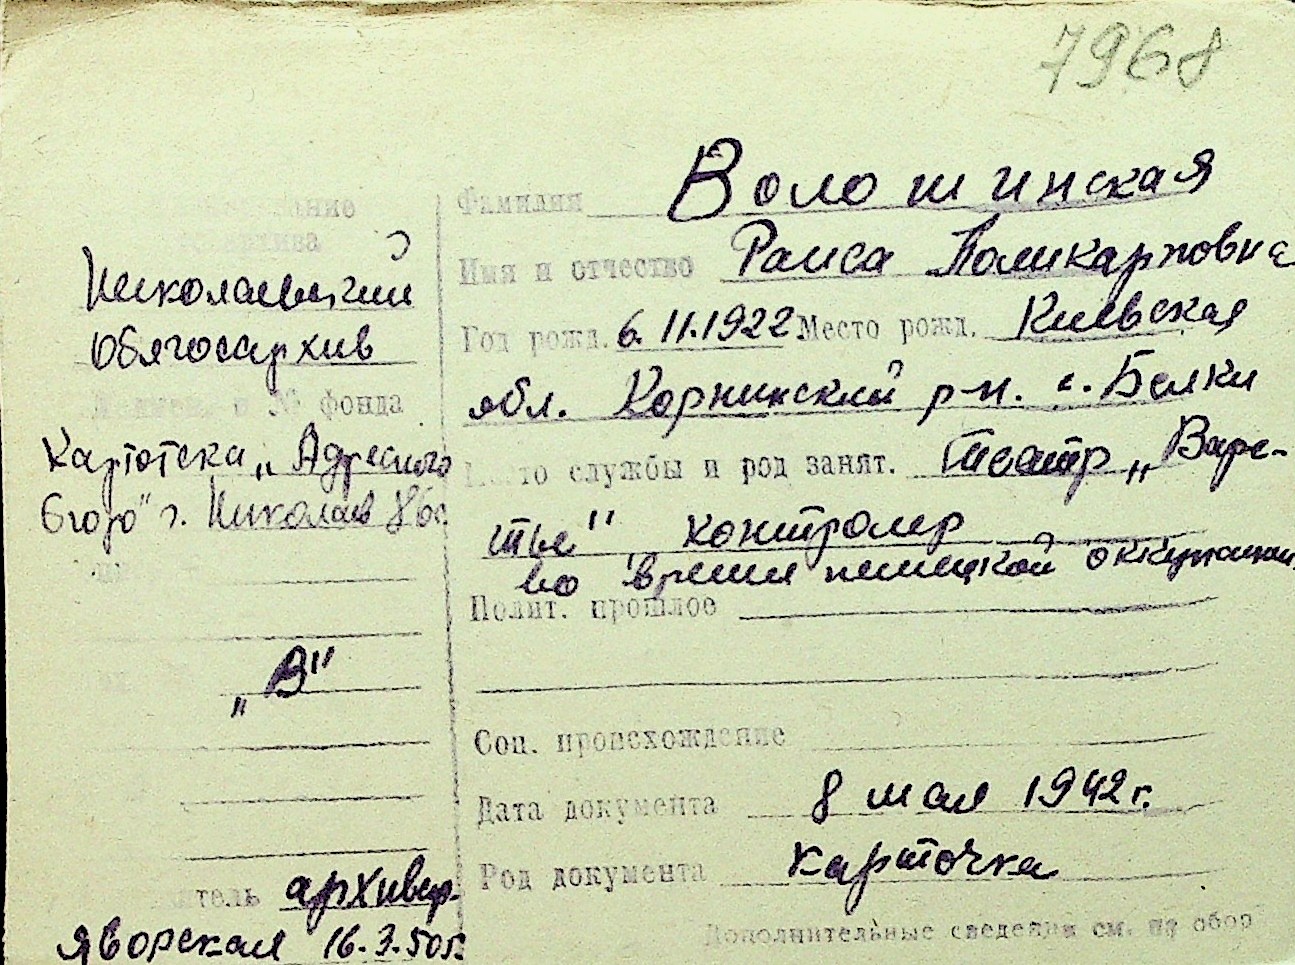 7968
Николаевский
Облгосархив
№ фонда
Картотека „Адресного
бюро" г. Николаев
„В"
архивар.
Яворская 16.3.50г.
Фамилия Волошинская
Имя и отчество Раиса Поликарповна
Год рожд. 6.11.1922 Место рожд. Киевская
обл. Корнинский р-н. с. Белки
Место службы и род занят. театр „Варе-
тье" контролер
во время немецкой оккупации
Полит. прошлое
Соц. происхождение
Дата документа 8 мая 1942г.
Род документа карточка
Дополнительные сведения см. на обор